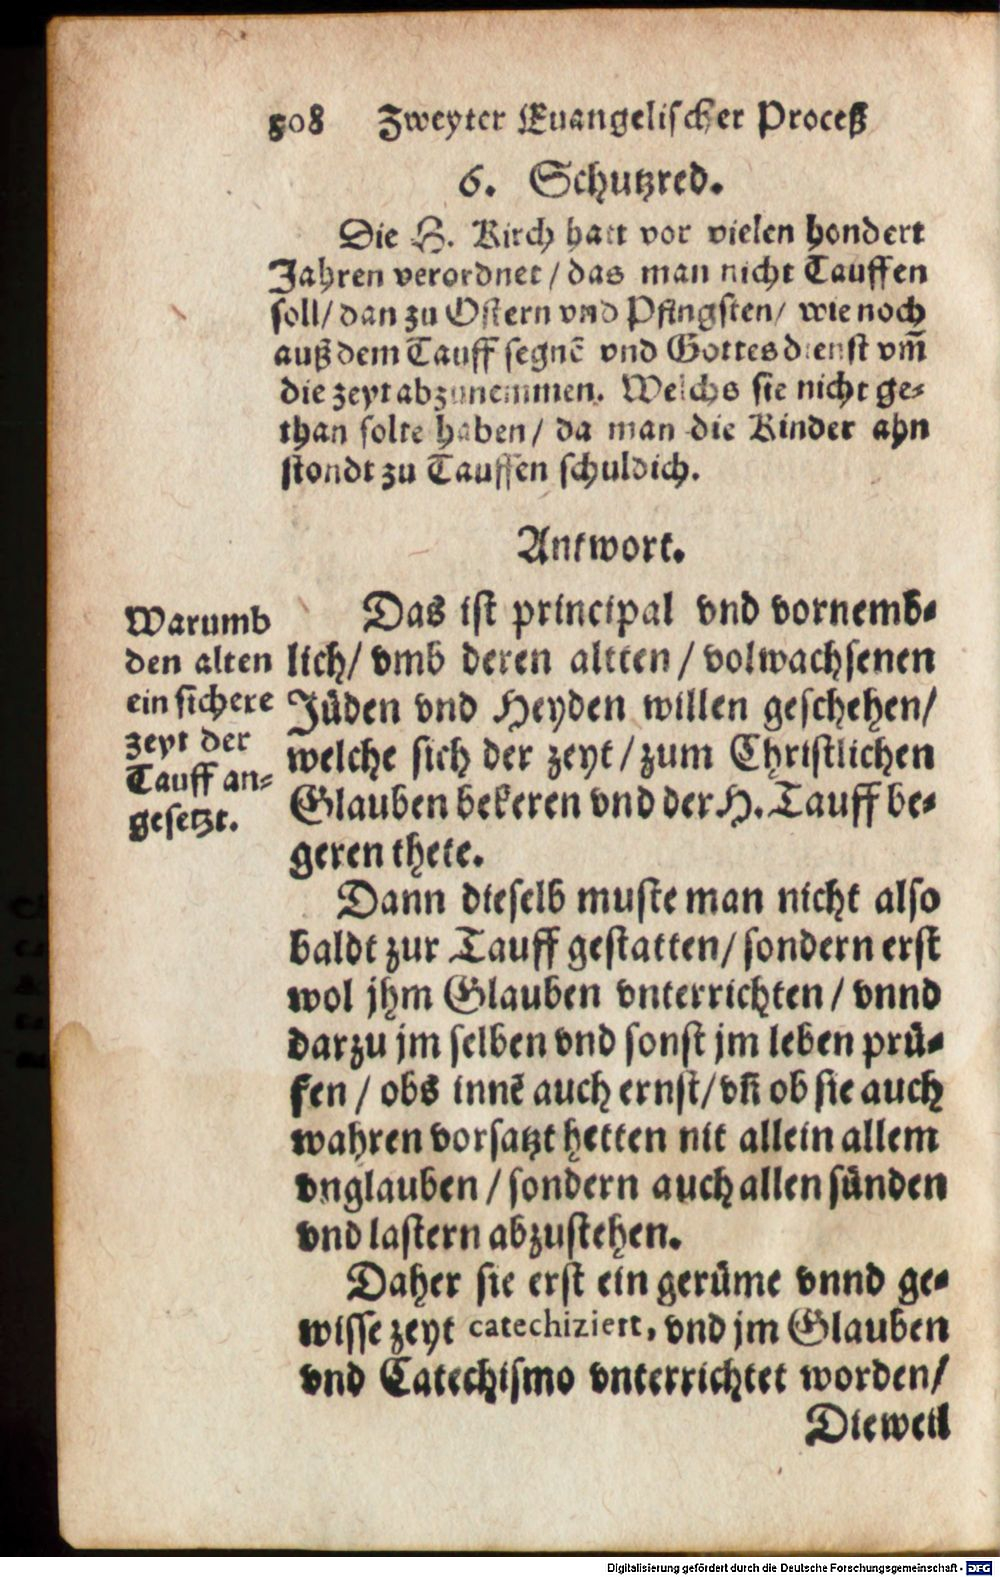 508 Zweyter Euangelischer Proceß
6. Schutzred.
Die H. Kirch hatt vor vielen hondert
Jahren verordnet / das man nicht Tauffen
soll / dan zu Ostern vnd Pfingsten / wie noch
auß dem Tauff segnē vnd Gottesdienst vm̃
die zeyt abzunemmen. Welchs sie nicht ge-
than solte haben / da man die Kinder ahn
stondt zu Tauffen schuldich.
Antwort.
Warumb
den alten
ein sichere
zeyt der
Tauff an-
gesetzt.
Das ist principal vnd vornemb-
lich / vmb deren altten / volwachsenen
Jüden vnd Heyden willen geschehen /
welche sich der zeyt / zum Christlichen
Glauben bekeren vnd der H. Tauff be-
geren thete.
Dann dieselb muste man nicht also
baldt zur Tauff gestatten / sondern erst
wol jhm Glauben vnterrichten / vnnd
darzu jm selben vnd sonst jm leben prü-
fen / obs innē auch ernst / vñ ob sie auch
wahren vorsatzt hetten nit allein allem
vnglauben / sondern auch allen sünden
vnd lastern abzustehen.
Daher sie erst ein gerüme vnnd ge-
wisse zeyt catechiziert, vnd jm Glauben
vnd Catechismo vnterrichtet worden /
Dieweil
Digitalisierung gefördert durch die Deutsche Forschungsgemeinschaft - DFG